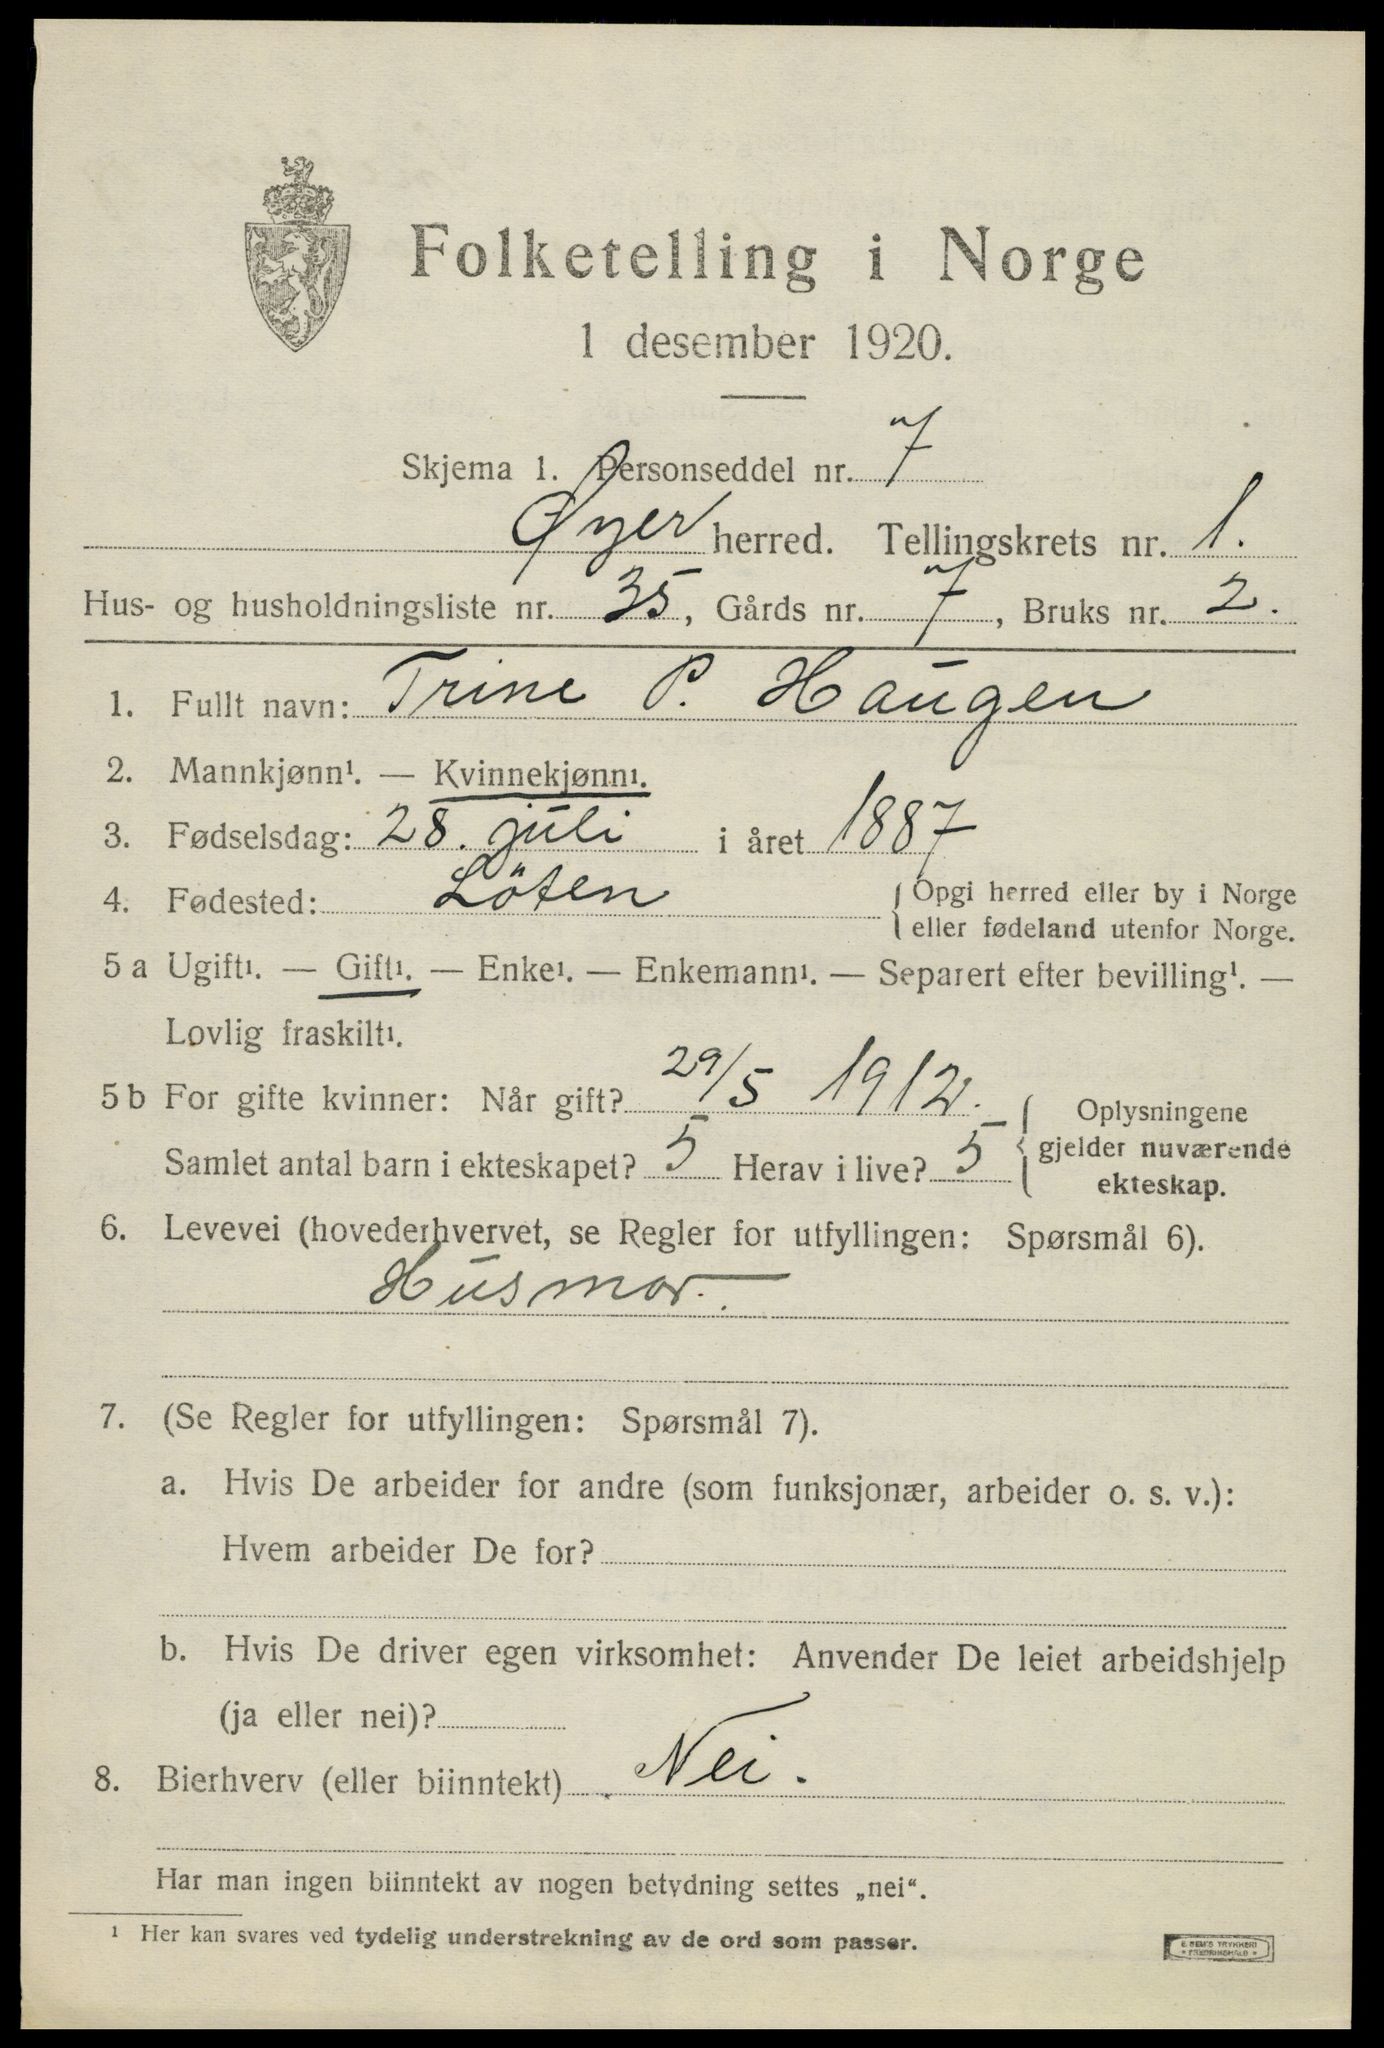 Folketelling i Norge
1 desember 1920.
Skjema 1. Personseddel nr. 7
Øyer herred. Tellingskrets nr. 1.
Hus- og husholdningsliste nr. 35, Gårds nr. 7, Bruks nr. 2.
1. Fullt navn: Trine P. Haugen
2. Mannkjønn¹. — Kvinnekjønn¹.
3. Fødselsdag: 28. juli i året 1887
4. Fødested: Löten { Opgi herred eller by i Norge
eller fødeland utenfor Norge.
5 a Ugift¹. — Gift¹. — Enke¹. — Enkemann¹. — Separert efter bevilling¹. —
Lovlig fraskilt¹.
5 b For gifte kvinner: Når gift? 29/5 1912. { Oplysningene
Samlet antal barn i ekteskapet? 5 Herav i live? 5 gjelder nuværende
ekteskap.
6. Levevei (hovederhvervet, se Regler for utfyllingen: Spørsmål 6).
Husmor.
7. (Se Regler for utfyllingen: Spørsmål 7).
a. Hvis De arbeider for andre (som funksjonær, arbeider o. s. v.):
Hvem arbeider De for?
b. Hvis De driver egen virksomhet: Anvender De leiet arbeidshjelp
(ja eller nei)?
8. Bierhverv (eller biinntekt) Nei.
Har man ingen biinntekt av nogen betydning settes „nei“.
¹ Her kan svares ved tydelig understrekning av de ord som passer.
E. SEM'S TRYKKERI
* FREDRIKSHALD *